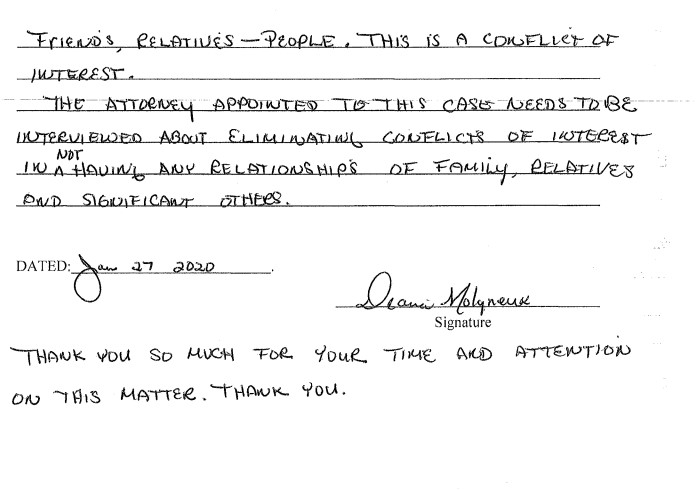 FRIENDS, RELATIVES — PEOPLE. THIS IS A CONFLICT OF
INTEREST.
THE ATTORNEY APPOINTED TO THIS CASE NEEDS TO BE
INTERVIEWED ABOUT ELIMINATING CONFLICTS OF INTEREST
IN NOT HAVING ANY RELATIONSHIPS OF FAMILY, RELATIVES
AND SIGNIFICANT OTHERS.
DATED: Jan 27 2020.
Deani Molyneux
Signature
THANK YOU SO MUCH FOR YOUR TIME AND ATTENTION
ON THIS MATTER. THANK YOU.